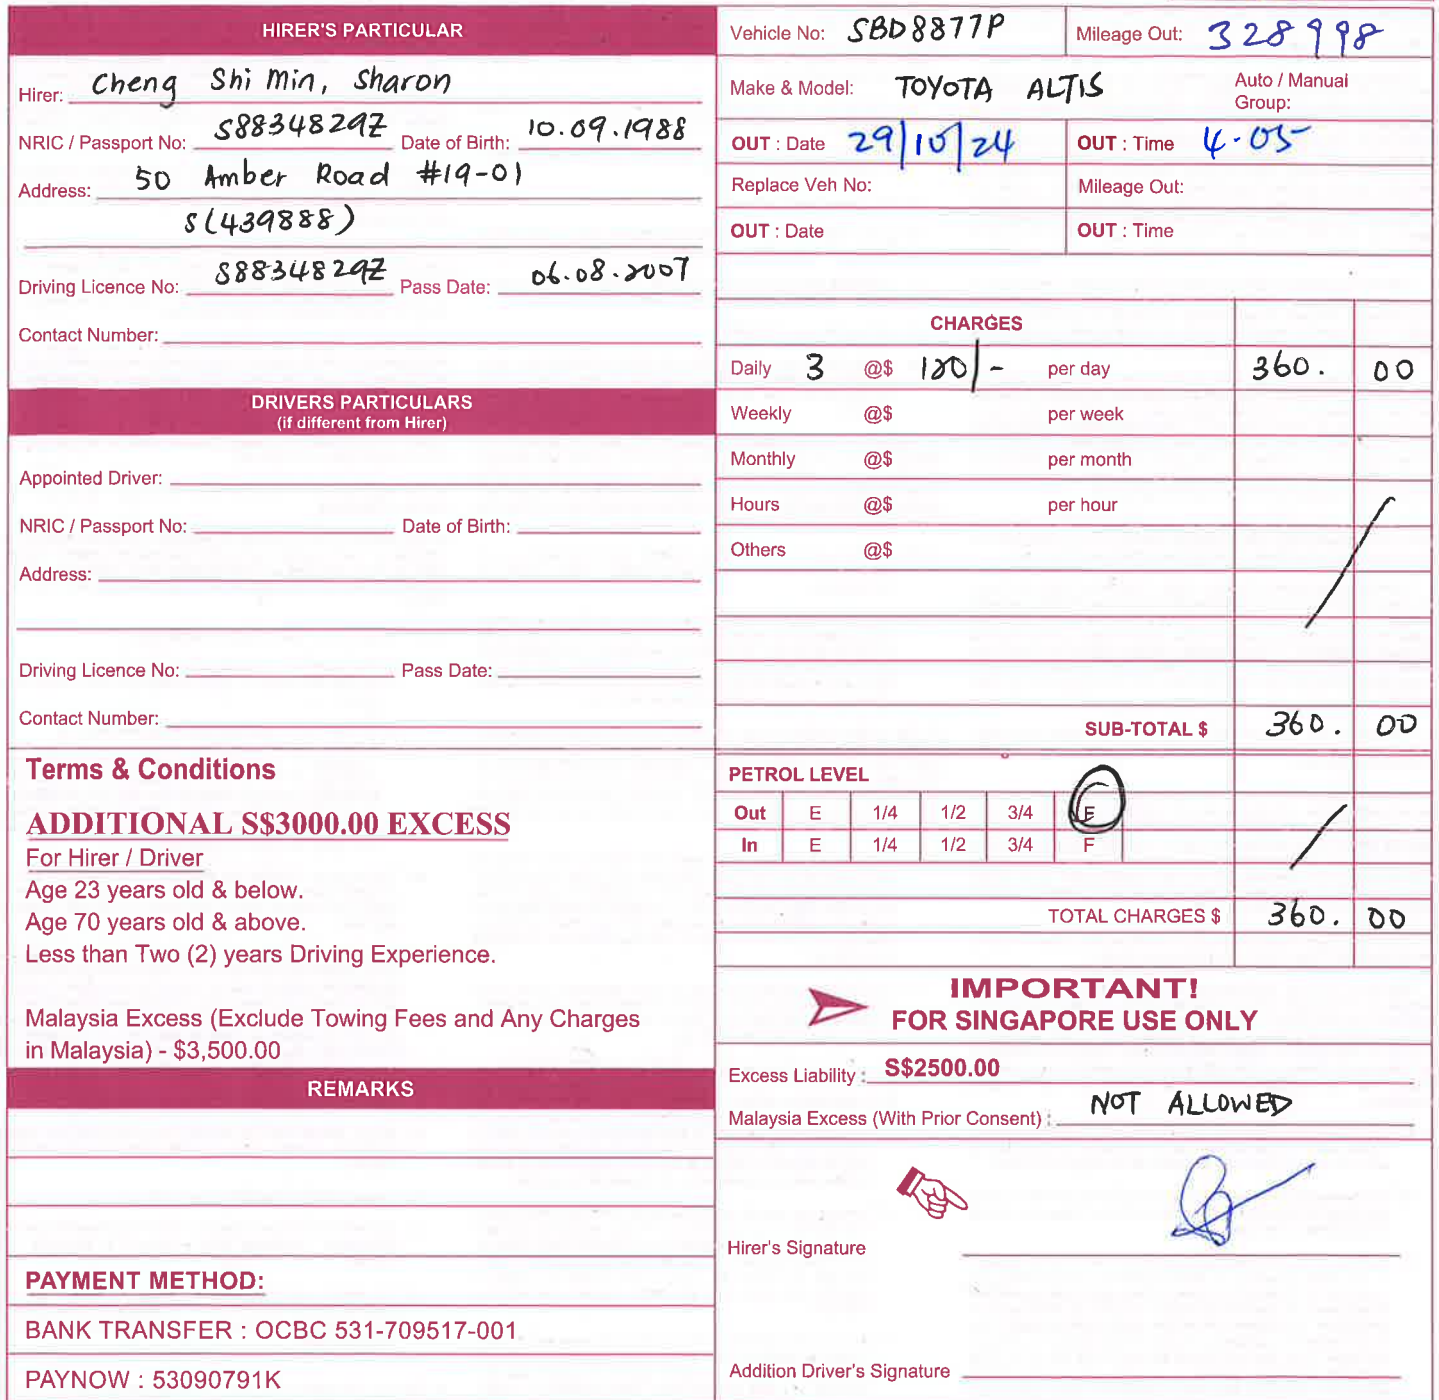 HIRER'S PARTICULAR
Hirer: Cheng Shi Min, Sharon
NRIC / Passport No: S8834829Z Date of Birth: 10.09.1988
Address: 50 Amber Road #19-01
S(439888)
Driving Licence No: S8834829Z Pass Date: 06.08.2007
Contact Number:
DRIVERS PARTICULARS
(if different from Hirer)
Appointed Driver:
NRIC / Passport No: Date of Birth:
Address:
Driving Licence No: Pass Date:
Contact Number:
Terms & Conditions
ADDITIONAL S$3000.00 EXCESS
For Hirer / Driver
Age 23 years old & below.
Age 70 years old & above.
Less than Two (2) years Driving Experience.
Malaysia Excess (Exclude Towing Fees and Any Charges
in Malaysia) - $3,500.00
REMARKS
PAYMENT METHOD:
BANK TRANSFER : OCBC 531-709517-001
PAYNOW : 53090791K
Vehicle No: SBD8877P Mileage Out: 328998
Make & Model: TOYOTA ALTIS Auto / Manual
Group:
OUT : Date 29/10/24 OUT : Time 4.05
Replace Veh No: Mileage Out:
OUT : Date OUT : Time
CHARGES
Daily 3 @$ 120/- per day 360. 00
Weekly @$ per week
Monthly @$ per month
Hours @$ per hour
Others @$
SUB-TOTAL $ 360. 00
PETROL LEVEL
Out E 1/4 1/2 3/4 F
In E 1/4 1/2 3/4 F
TOTAL CHARGES $ 360. 00
IMPORTANT!
FOR SINGAPORE USE ONLY
Excess Liability : S$2500.00
Malaysia Excess (With Prior Consent) : NOT ALLOWED
Hirer's Signature
Addition Driver's Signature